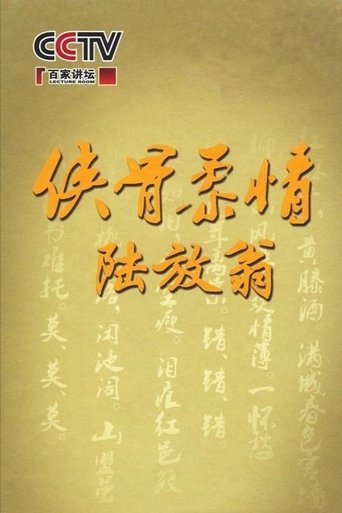 CCTV
百家讲坛
LECTURE ROOM
侠骨柔情
陆放翁
黄滕酒 满城春色宫墙
柳 风 欢情薄。一怀愁
离索。错、错、错
瘦。泪痕红邑鲛
闲池阁。山盟虽
书难托。莫、莫、莫。